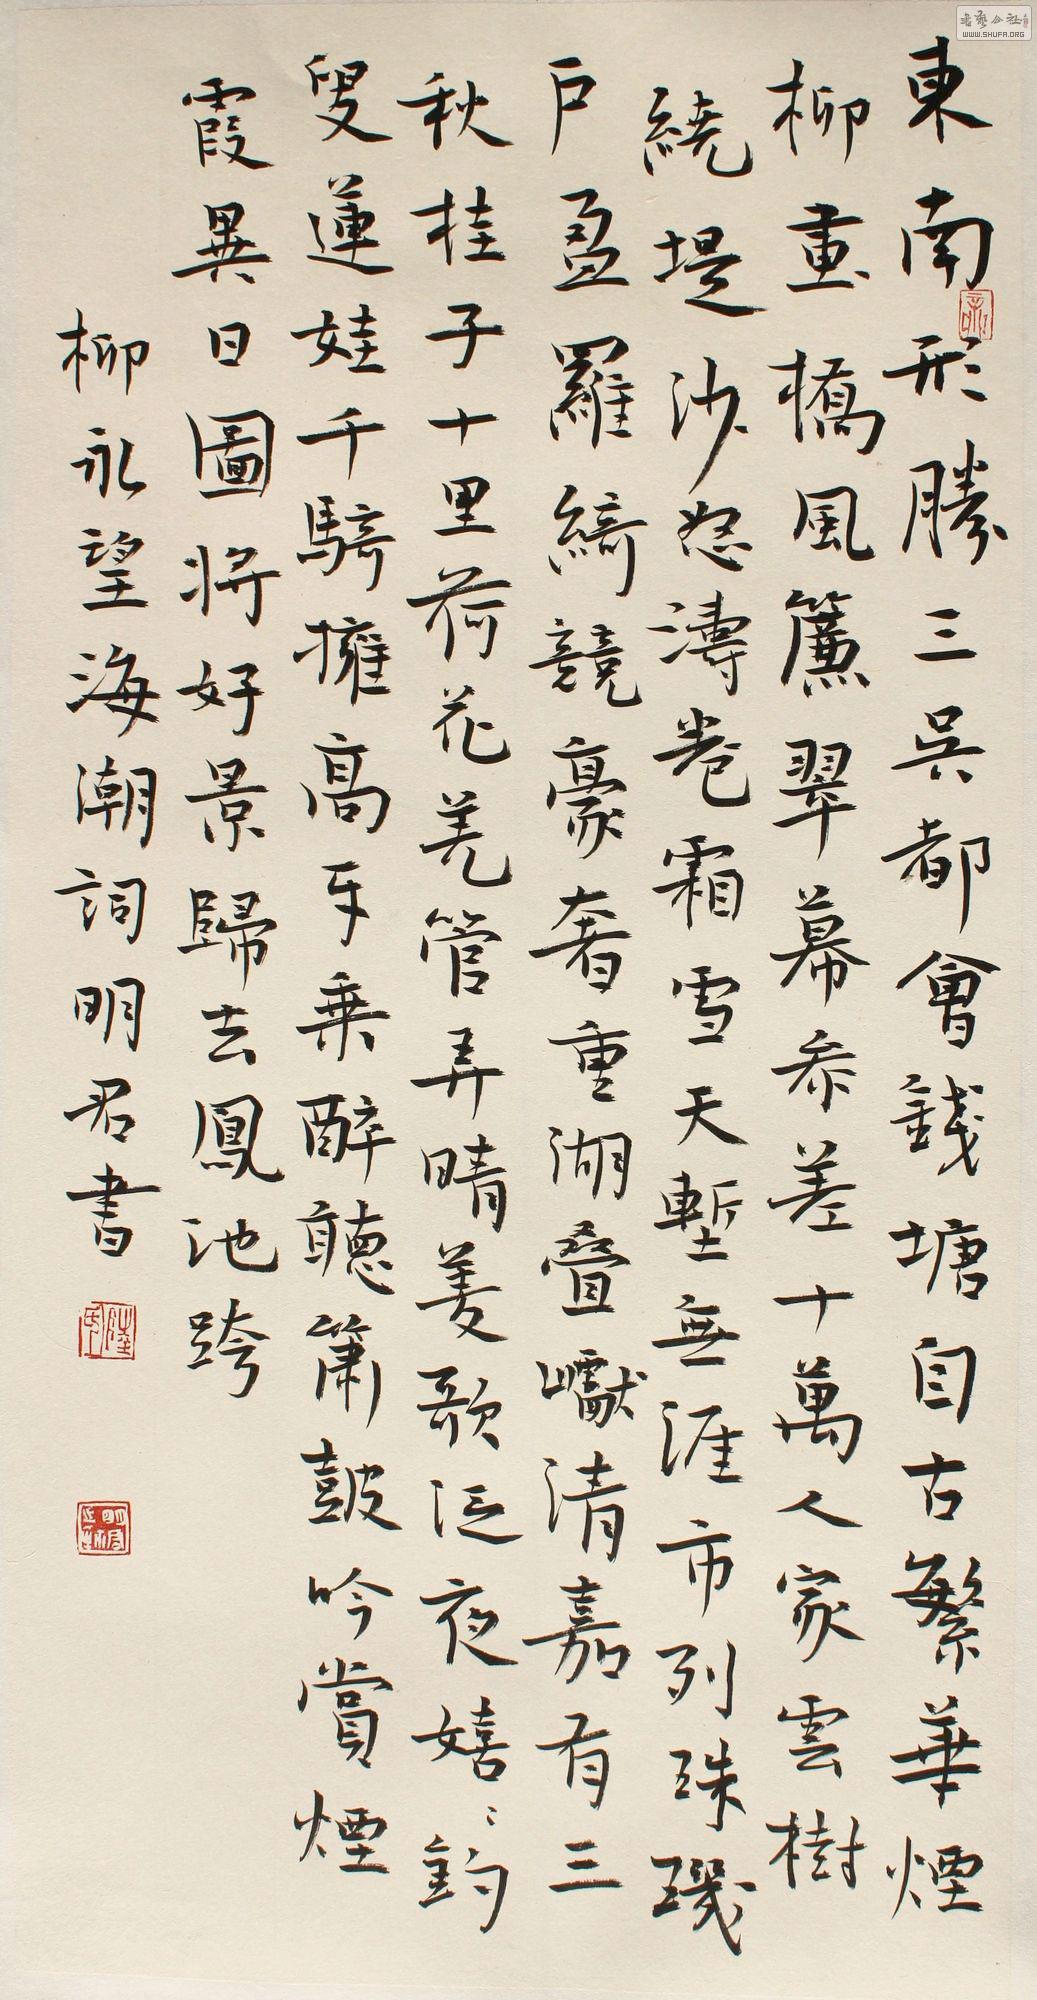 東南形勝三吳都會錢塘自古繁華煙
柳畫橋風簾翠幕參差十萬人家雲樹
繞堤沙怒濤卷霜雪天塹無涯市列珠璣
户盈羅綺競豪奢重湖疊巘清嘉有三
秋桂子十里荷花羌管弄晴菱歌泛夜嬉嬉釣
叟蓮娃千騎擁高牙乘醉聽簫鼓吟賞煙
霞異日圖將好景歸去鳳池誇
柳永望海潮詞明君書
WWW.SHUFA.ORG